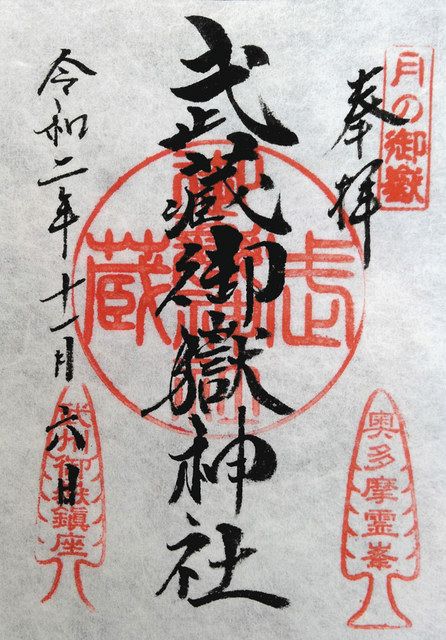 月の御嶽
奉拝
武蔵御嶽神社
令和二年十一月六日
武蔵
奥多摩霊峯
武州御嶽鎮座